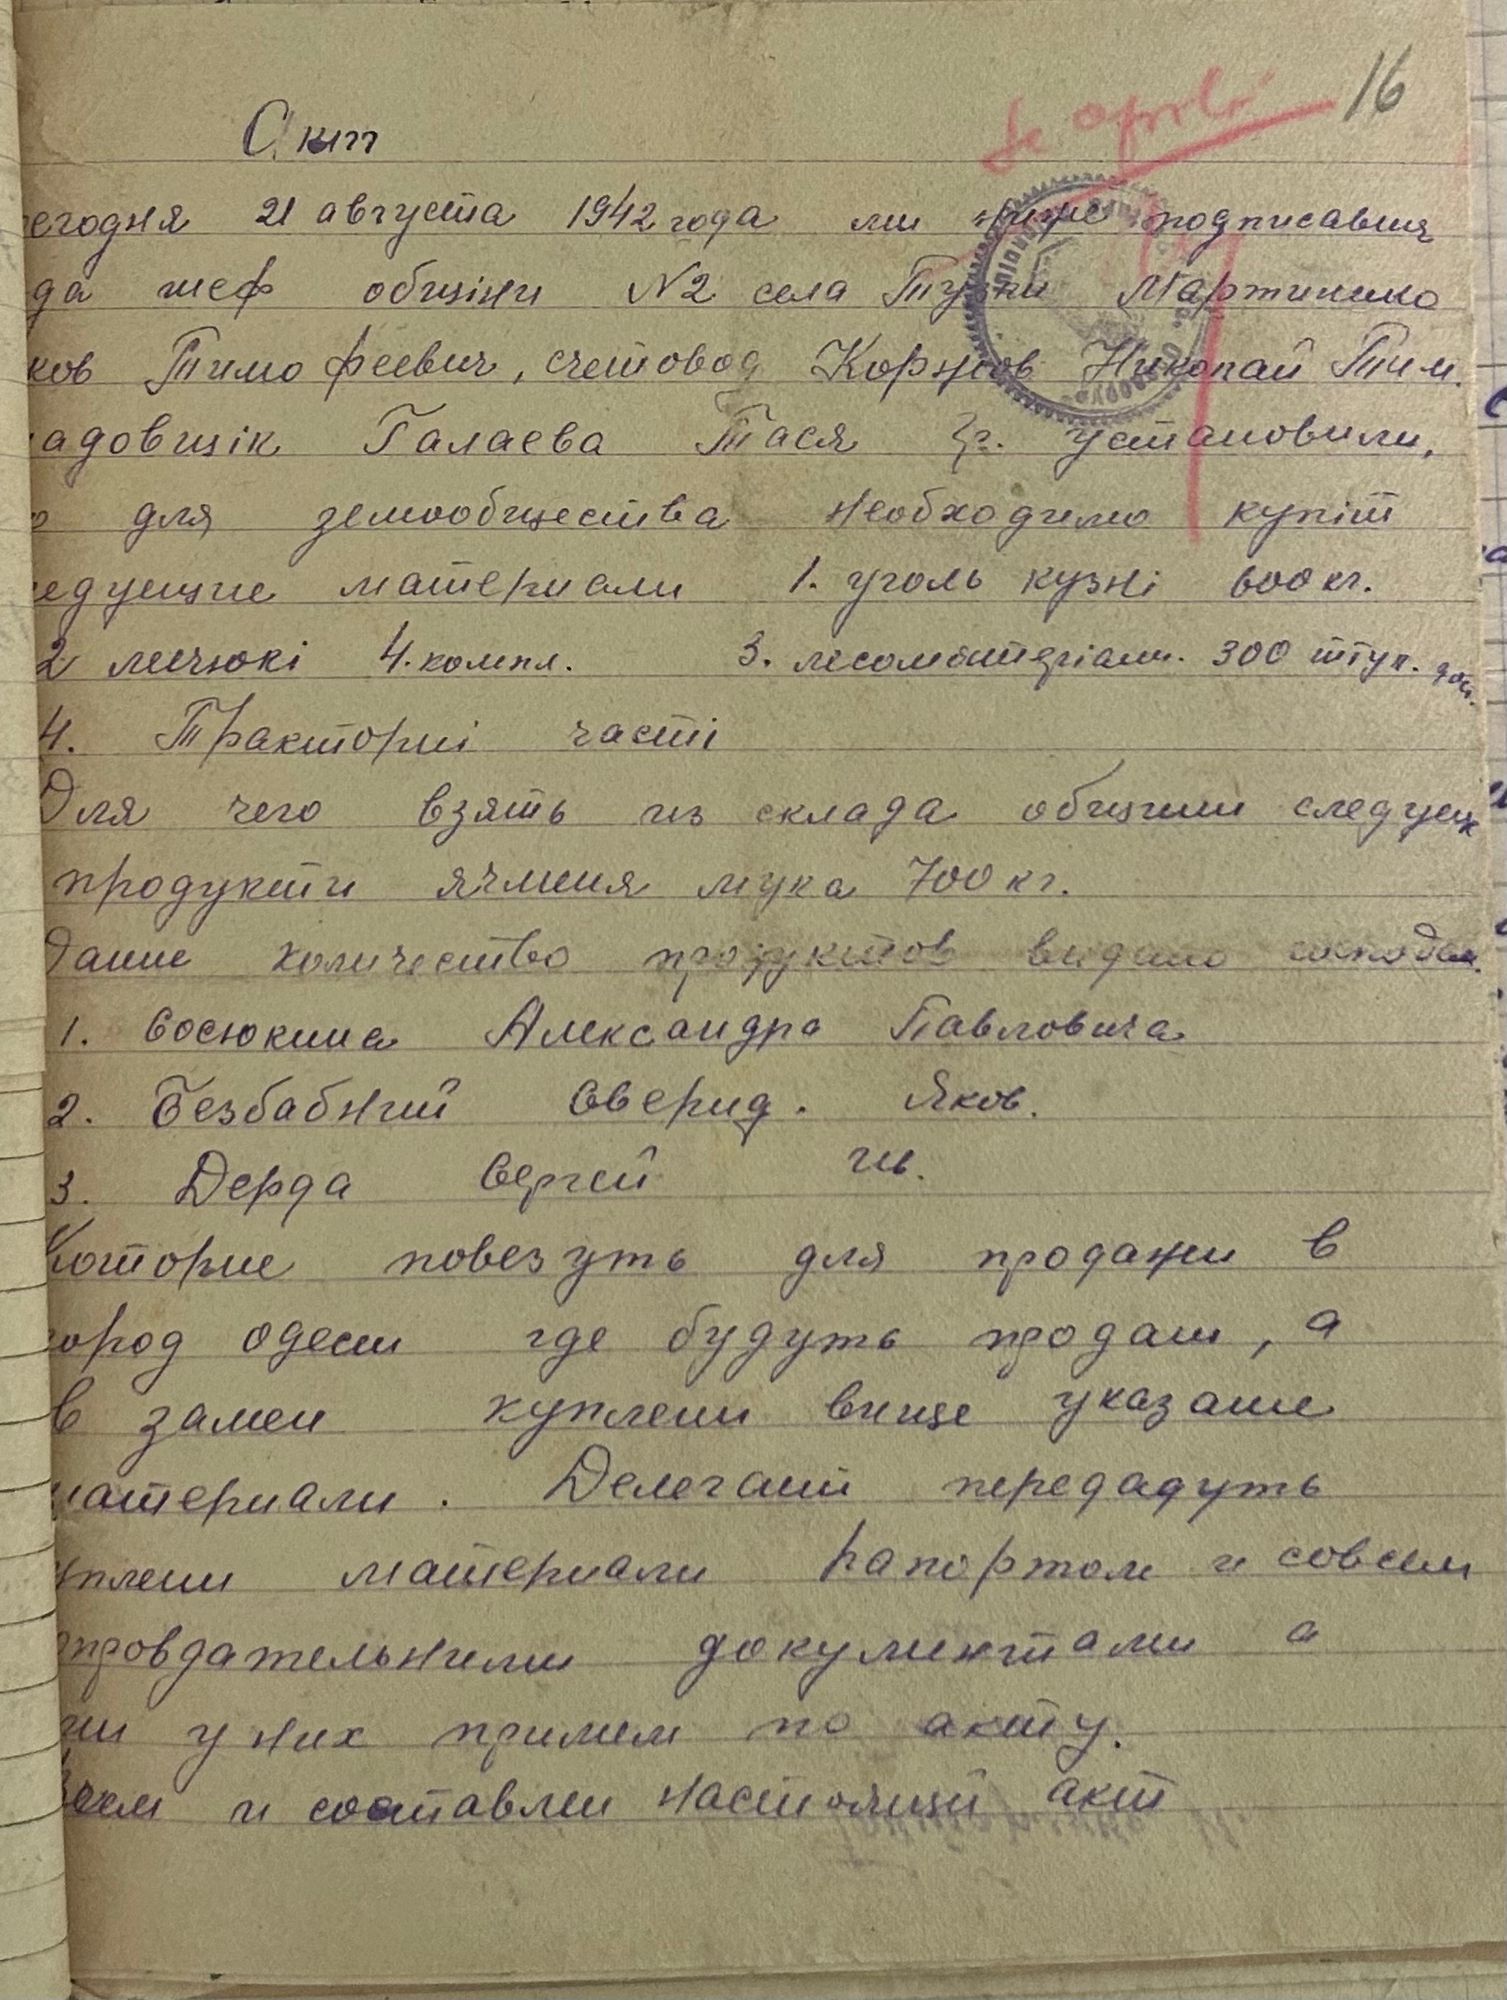 16
Акт
сегодня 21 августа 1942 года ми ниже подписавшия
да шеф общіни N2 села Тузли Мартиненко
ков Тимофеевич, счетовод Коржов Николай Тим.
ладовщік Галаева Тася Гр. установили,
о для земообщества необходимо купіт
едующие материали 1. уголь кузні 600 кг.
2 4. компл. 3. лесоматеріали. 300 штук.
4. Тракторні часті
Для чего взять из склада общини следующ
продукти ячменя мука 700 кг.
Дание количество продуктов видано
1. Сосюкина Александра Павловича
2. Безбабний Сверид. Яков.
3. Дерда Сергей Ив.
Которие повезуть для продажи в
город одеси где будуть продани, а
в замен куплени више указание
материали. Делегати передадуть
уплени материали рапортом и совсеми
оправдательними документами а
ми у них примем по акту.
Вчем и составлен настоящий акт